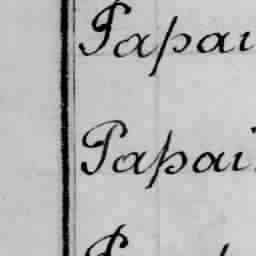 Papai
Papai